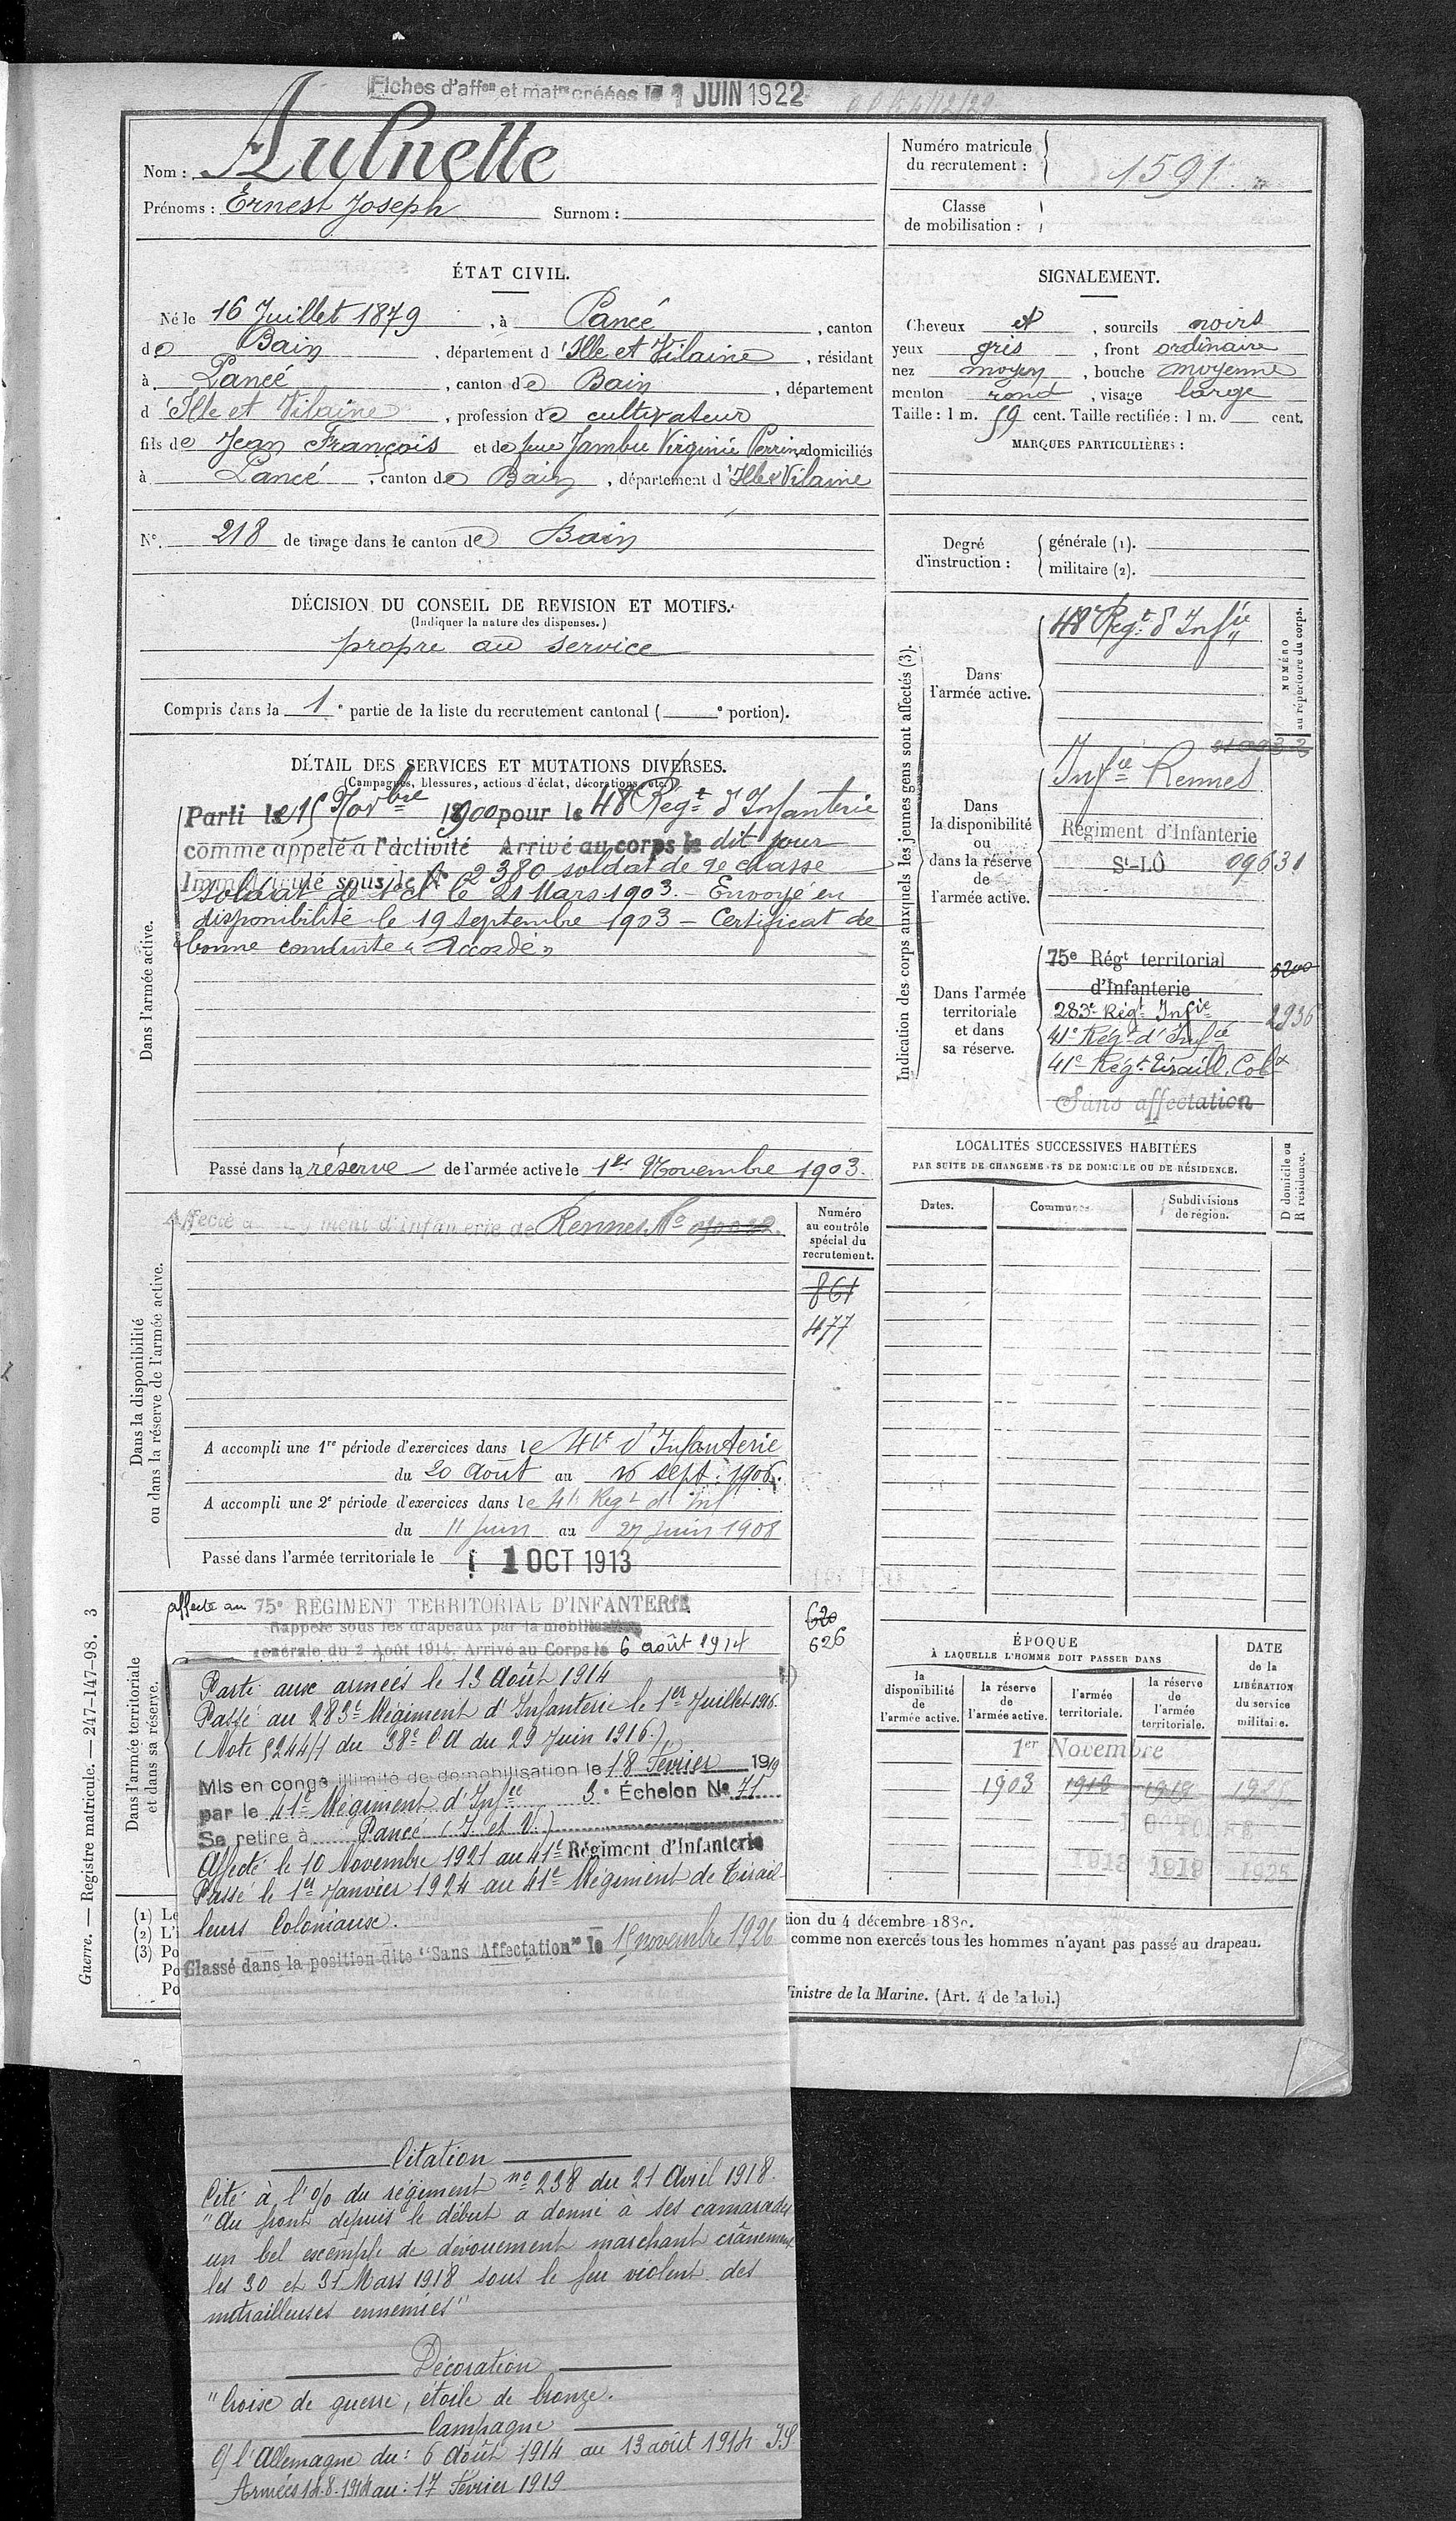 Fiches d'affon et matre créées le 1 JUIN 1922
Nom : Aulnette
Prénoms : Ernest Joseph Surnom :
Numéro matricule
du recrutement : 1591
Classe
de mobilisation :
ÉTAT CIVIL.
Né le 16 Juillet 1879, à Pancé, canton
de Bain, département d'Ille et Vilaine, résidant
à Pancé, canton de Bain, département
d'Ille et Vilaine, profession de cultivateur
fils de Jean François et de feue Jambu Virginie Perrine domiciliés
à Pancé, canton de Bain, département d'Ille & Vilaine
N° 218 de tirage dans le canton de Bain
SIGNALEMENT.
Cheveux et, sourcils noirs
yeux gris, front ordinaire
nez moyen, bouche moyenne
menton rond, visage large
Taille : 1 m. 59 cent. Taille rectifiée : 1 m. cent.
MARQUES PARTICULIÈRES :
Degré
d'instruction :
générale (1).
militaire (2).
DÉCISION DU CONSEIL DE REVISION ET MOTIFS.
(Indiquer la nature des dispenses.)
propre au service
Compris dans la 1e partie de la liste du recrutement cantonal ( e portion).
DÉTAIL DES SERVICES ET MUTATIONS DIVERSES.
(Campagnes, blessures, actions d'éclat, décorations, etc.)
Dans l'armée active.
Parti le 15 Novbre 1900 pour le 48 Régt d'Infanterie
comme appelé à l'activité Arrivé au corps le dit jour
Immatriculé sous le N° 2380 soldat de 2e classe
Soldat de 1e cl le 21 Mars 1903. - Envoyé en
disponibilité le 19 Septembre 1903 - Certificat de
bonne conduite « Accordé »
Passé dans la réserve de l'armée active le 1er Novembre 1903.
Indication des corps auxquels les jeunes gens sont affectés (3).
NUMÉRO
au répertoire du corps.
Dans
l'armée active.
48e Régt d'Infie
Dans
la disponibilité
ou
dans la réserve
de
l'armée active.
Infie Rennes
Régiment d'Infanterie
St-LÔ 09631
Dans l'armée
territoriale
et dans
sa réserve.
75e Régt territorial
d'Infanterie
5200
283e Régt Infie 2936
41e Régt d'Infie
41e Régt Tiraill. Colx
Sans affectation
LOCALITÉS SUCCESSIVES HABITÉES
PAR SUITE DE CHANGEMENTS DE DOMICILE OU DE RÉSIDENCE.
Dates.
Communes.
Subdivisions
de région.
D domicile ou
R résidence.
Dans la disponibilité
ou dans la réserve de l'armée active.
Affecté au Régiment d'Infanterie de Rennes N°
Numéro
au contrôle
spécial du
recrutement.
861
477
A accompli une 1re période d'exercices dans le 41e d'Infanterie
du 20 Août au 16 sept. 1906.
A accompli une 2e période d'exercices dans le 41 Regt d'Inf
du 11 Juin au 27 Juin 1908
Passé dans l'armée territoriale le 1 OCT 1913
Dans l'armée territoriale
et dans sa réserve.
affecté au 75e RÉGIMENT TERRITORIAL D'INFANTERIE
Rappelé sous les drapeaux par la mobilisation
générale du 2 Août 1914. Arrivé au Corps le 6 août 1914
620
626
Parti aux armées le 13 Août 1914
Passé au 283e Régiment d'Infanterie le 1er Juillet 1916.
(Note 5244/1 du 38e C.A du 29 Juin 1916.)
Mis en congé illimité de démobilisation le 18 Février 1919
par le 41e Régiment d'Infie 3e Échelon N° 71
Se retire à Pancé (I. et V.)
Affecté le 10 Novembre 1921 au 41e Régiment d'Infanterie
Passé le 1er Janvier 1924 au 41e Régiment de Tirail-
leurs Coloniaux.
Classé dans la position dite "Sans Affectation" le 15 novembre 1926
ÉPOQUE
À LAQUELLE L'HOMME DOIT PASSER DANS
la
disponibilité
de
l'armée active.
la réserve
de
l'armée active.
l'armée
territoriale.
la réserve
de
l'armée
territoriale.
DATE
de la
LIBÉRATION
du service
militaire.
1er Novembre
1903 1913 1919
1913 1919 1925
(1) Le
(2) L'i
(3) Po
Po
Po
tion du 4 décembre 1889.
comme non exercés tous les hommes n'ayant pas passé au drapeau.
inistre de la Marine. (Art. 4 de la loi.)
Guerre. — Registre matricule. — 247-147-98. 3
Citation
Cité à l'o/o du régiment no 238 du 21 Avril 1918.
"Au front depuis le début a donné à ses camarades
un bel exemple de dévouement marchant crânement
les 30 et 31 Mars 1918 sous le feu violent des
mitrailleuses ennemies"
Décoration
"Croix de guerre, étoile de bronze.
Campagne
C/ l'Allemagne du : 6 Août 1914 au 13 août 1914 I.S
Armées 14.8.1914 au : 17 Février 1919